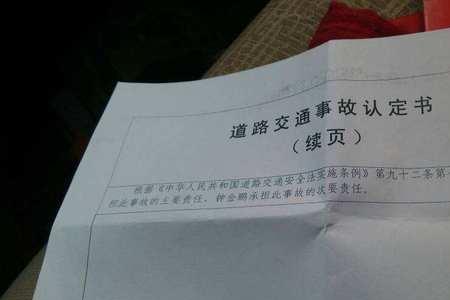 道路交通事故认定书
（续页）
根据《中华人民共和国道路交通安全法实施条例》第九十二条第
担此事故的主要责任，钟金鹏承担此事故的次要责任。